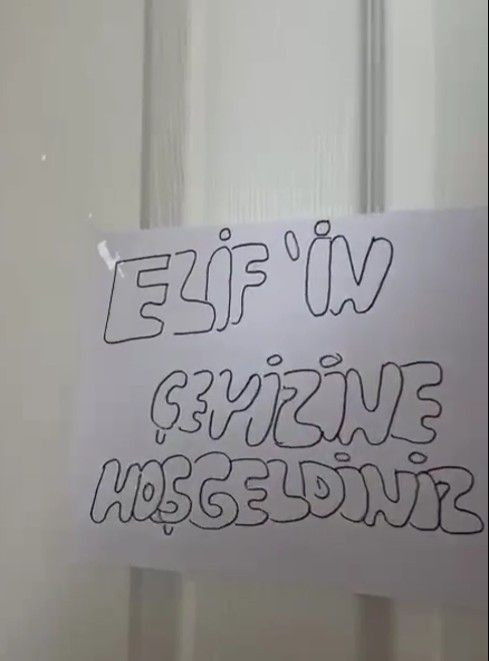 ELİF'İN
ÇEYİZİNE
HOŞGELDİNİZ